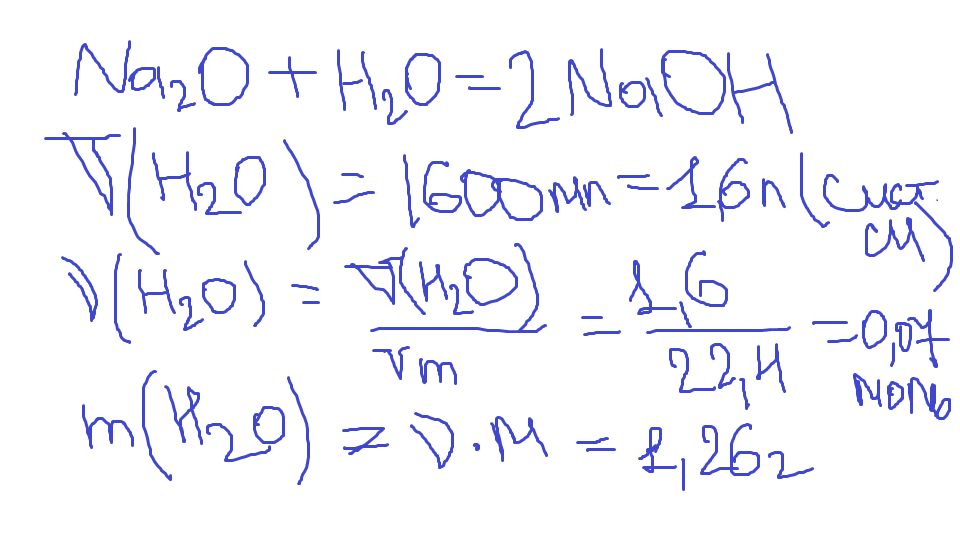 Na₂O + H₂O = 2NaOH
V(H₂O) = 1600 мл = 1,6 л (сист. СИ)
ν(H₂O) = V(H₂O) / Vm = 1,6 / 22,4 = 0,07 моль
m(H₂O) = ν · M = 1,26 г